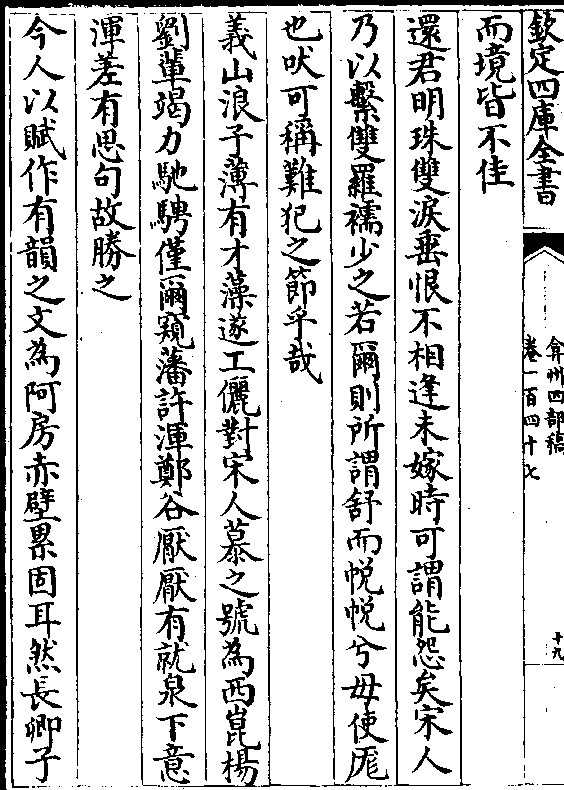 欽定四庫全書
弇州四部稿
卷一百四十七
十九
而境皆不佳
還君明珠雙淚垂恨不相逢未嫁時可謂能怨矣宋人
乃以繫雙羅襦少之若爾則所謂舒而帨帨兮毋使厖
也吠可稱難犯之節乎哉
義山浪子薄有才藻遂工儷對宋人慕之號為西崑楊
劉輩竭力馳騁僅爾窺藩許渾鄭谷厭厭有就泉下意
渾差有思句故勝之
今人以賦作有韻之文為阿房赤壁累固耳然長卿子